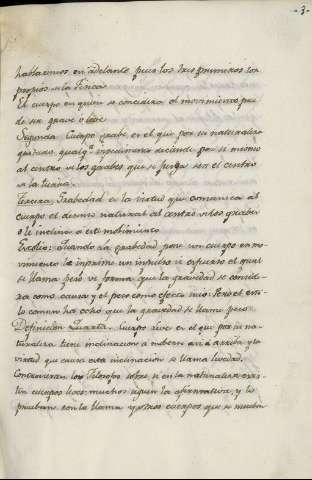 3
hablaremos en adelante, pues los tres primeros son
propios a la Fisica
El cuerpo en quien se considera el movimiento pue
de ser grave o leve
Segunda. Cuerpo grabe es el que por su naturaleza
desciende por si mismo
al centro de los grabes, que se juzga ser el centro
de la tierra.
Tercera. Grabedad es la virtud que comunica al
cuerpo el descenso natural al centro de los grabes
o le inclina a este movimiento
Escolio: quando la grabedad pone un cuerpo en mo-
vimiento le imprime un impulso o esfuerzo el qual
se llama peso de forma que la gravedad se consid
era como causa y el peso como efecto suio. Pero el esti-
lo comun ha echo que la gravedad se llame peso.
Definicion Quarta. Cuerpo leve es el que por su na-
turaleza tiene inclinacion a subir acia arriba y la
virtud que causa esta inclinacion se llama levedad.
los Filosofos sobre si en la naturaleza exis-
ten cuerpos leves: muchos siguen la afirmativa, y lo
prueban con la llama y otros cuerpos que se